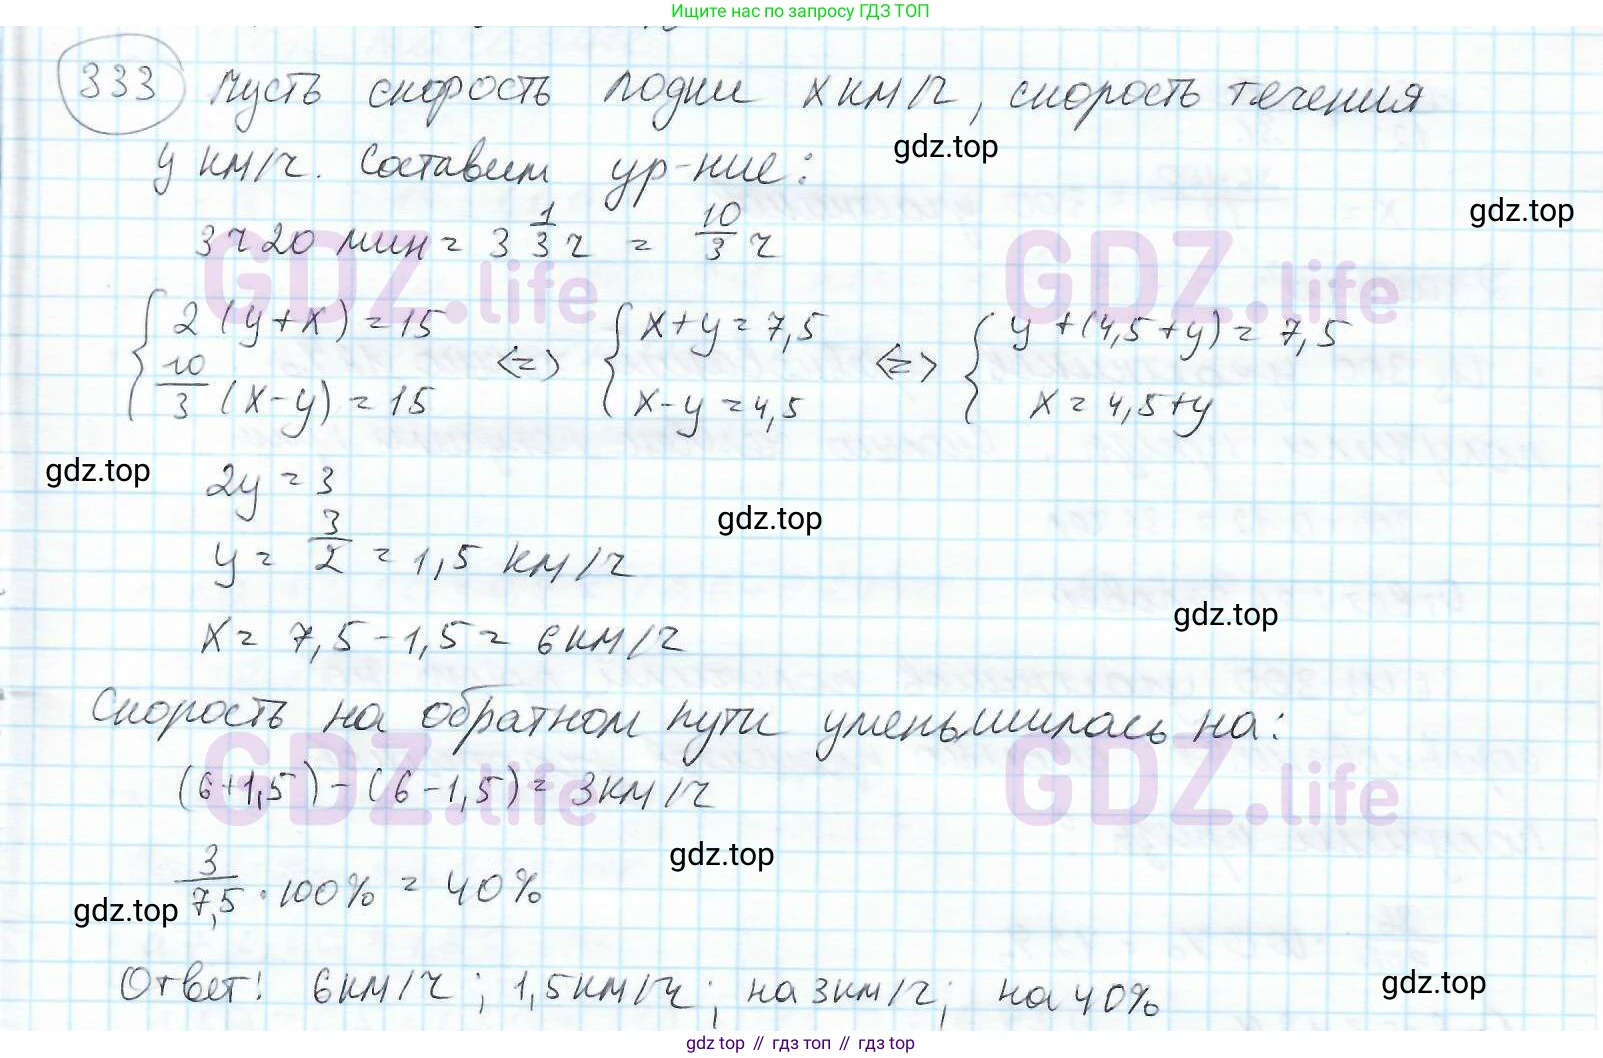 Ищите нас по запросу ГДЗ ТОП
333 Пусть скорость лодки x км/ч, скорость течения
y км/ч. Составим ур-ние:
gdz.top
gdz.top
3 ч 20 мин = 3 1/3 ч = 10/3 ч
GDZ.life GDZ.life
{ 2 (y+x) = 15 <=> { x+y = 7,5 <=> { y+(4,5+y) = 7,5
10/3 (x-y) = 15 x-y = 4,5 x = 4,5+y
gdz.top
2y = 3
gdz.top
y = 3/2 = 1,5 км/ч
gdz.top
x = 7,5 - 1,5 = 6 км/ч
Скорость на обратном пути уменьшилась на:
GDZ.life GDZ.life
(6+1,5) - (6-1,5) = 3 км/ч
gdz.top
3/7,5 · 100% = 40%
gdz.top
Ответ: 6 км/ч; 1,5 км/ч; на 3 км/ч; на 40%
gdz.top
gdz top // гдз топ // гдз top